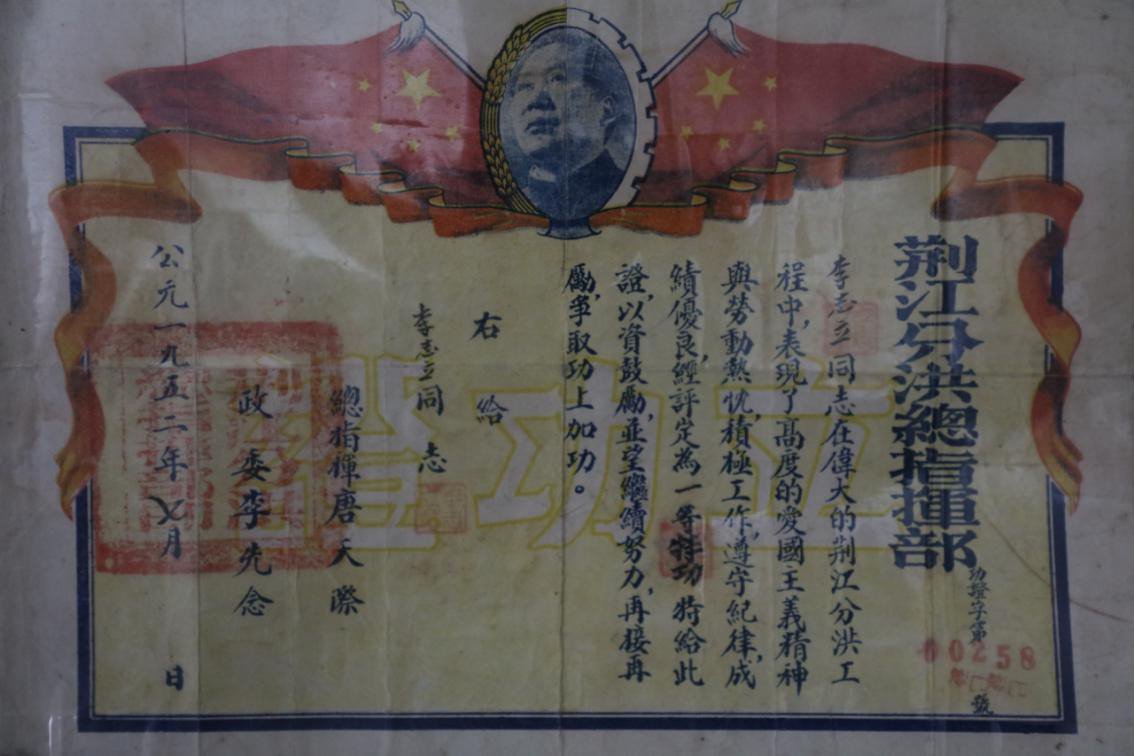 荆江分洪總指揮部
功證字第
00258
號
李志立同志在偉大的荆江分洪工
程中，表現了高度的愛國主義精神
與勞動熱忱，積極工作，遵守紀律，成
績優良，經評定為一等特功特給此
證，以資鼓勵，並望繼續努力，再接再
勵，爭取功上加功。
右給
李志立同志
總指揮唐天際
政委李先念
公元一九五二年七月 日
立功證